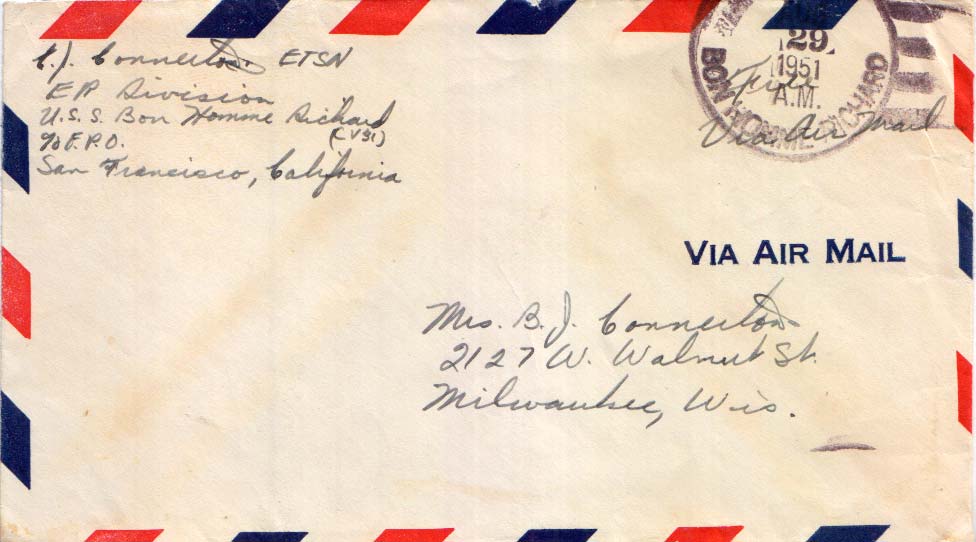 C. J. Connerton ETSN
ER Division
U.S.S. Bon Homme Richard
(CV31)
% F.P.O.
San Francisco, California
29
1951
A.M.
BON HOMME RICHARD
Free
Via Air Mail
VIA AIR MAIL
Mrs. B. J. Connerton
2127 W. Walnut St.
Milwaukee, Wis.